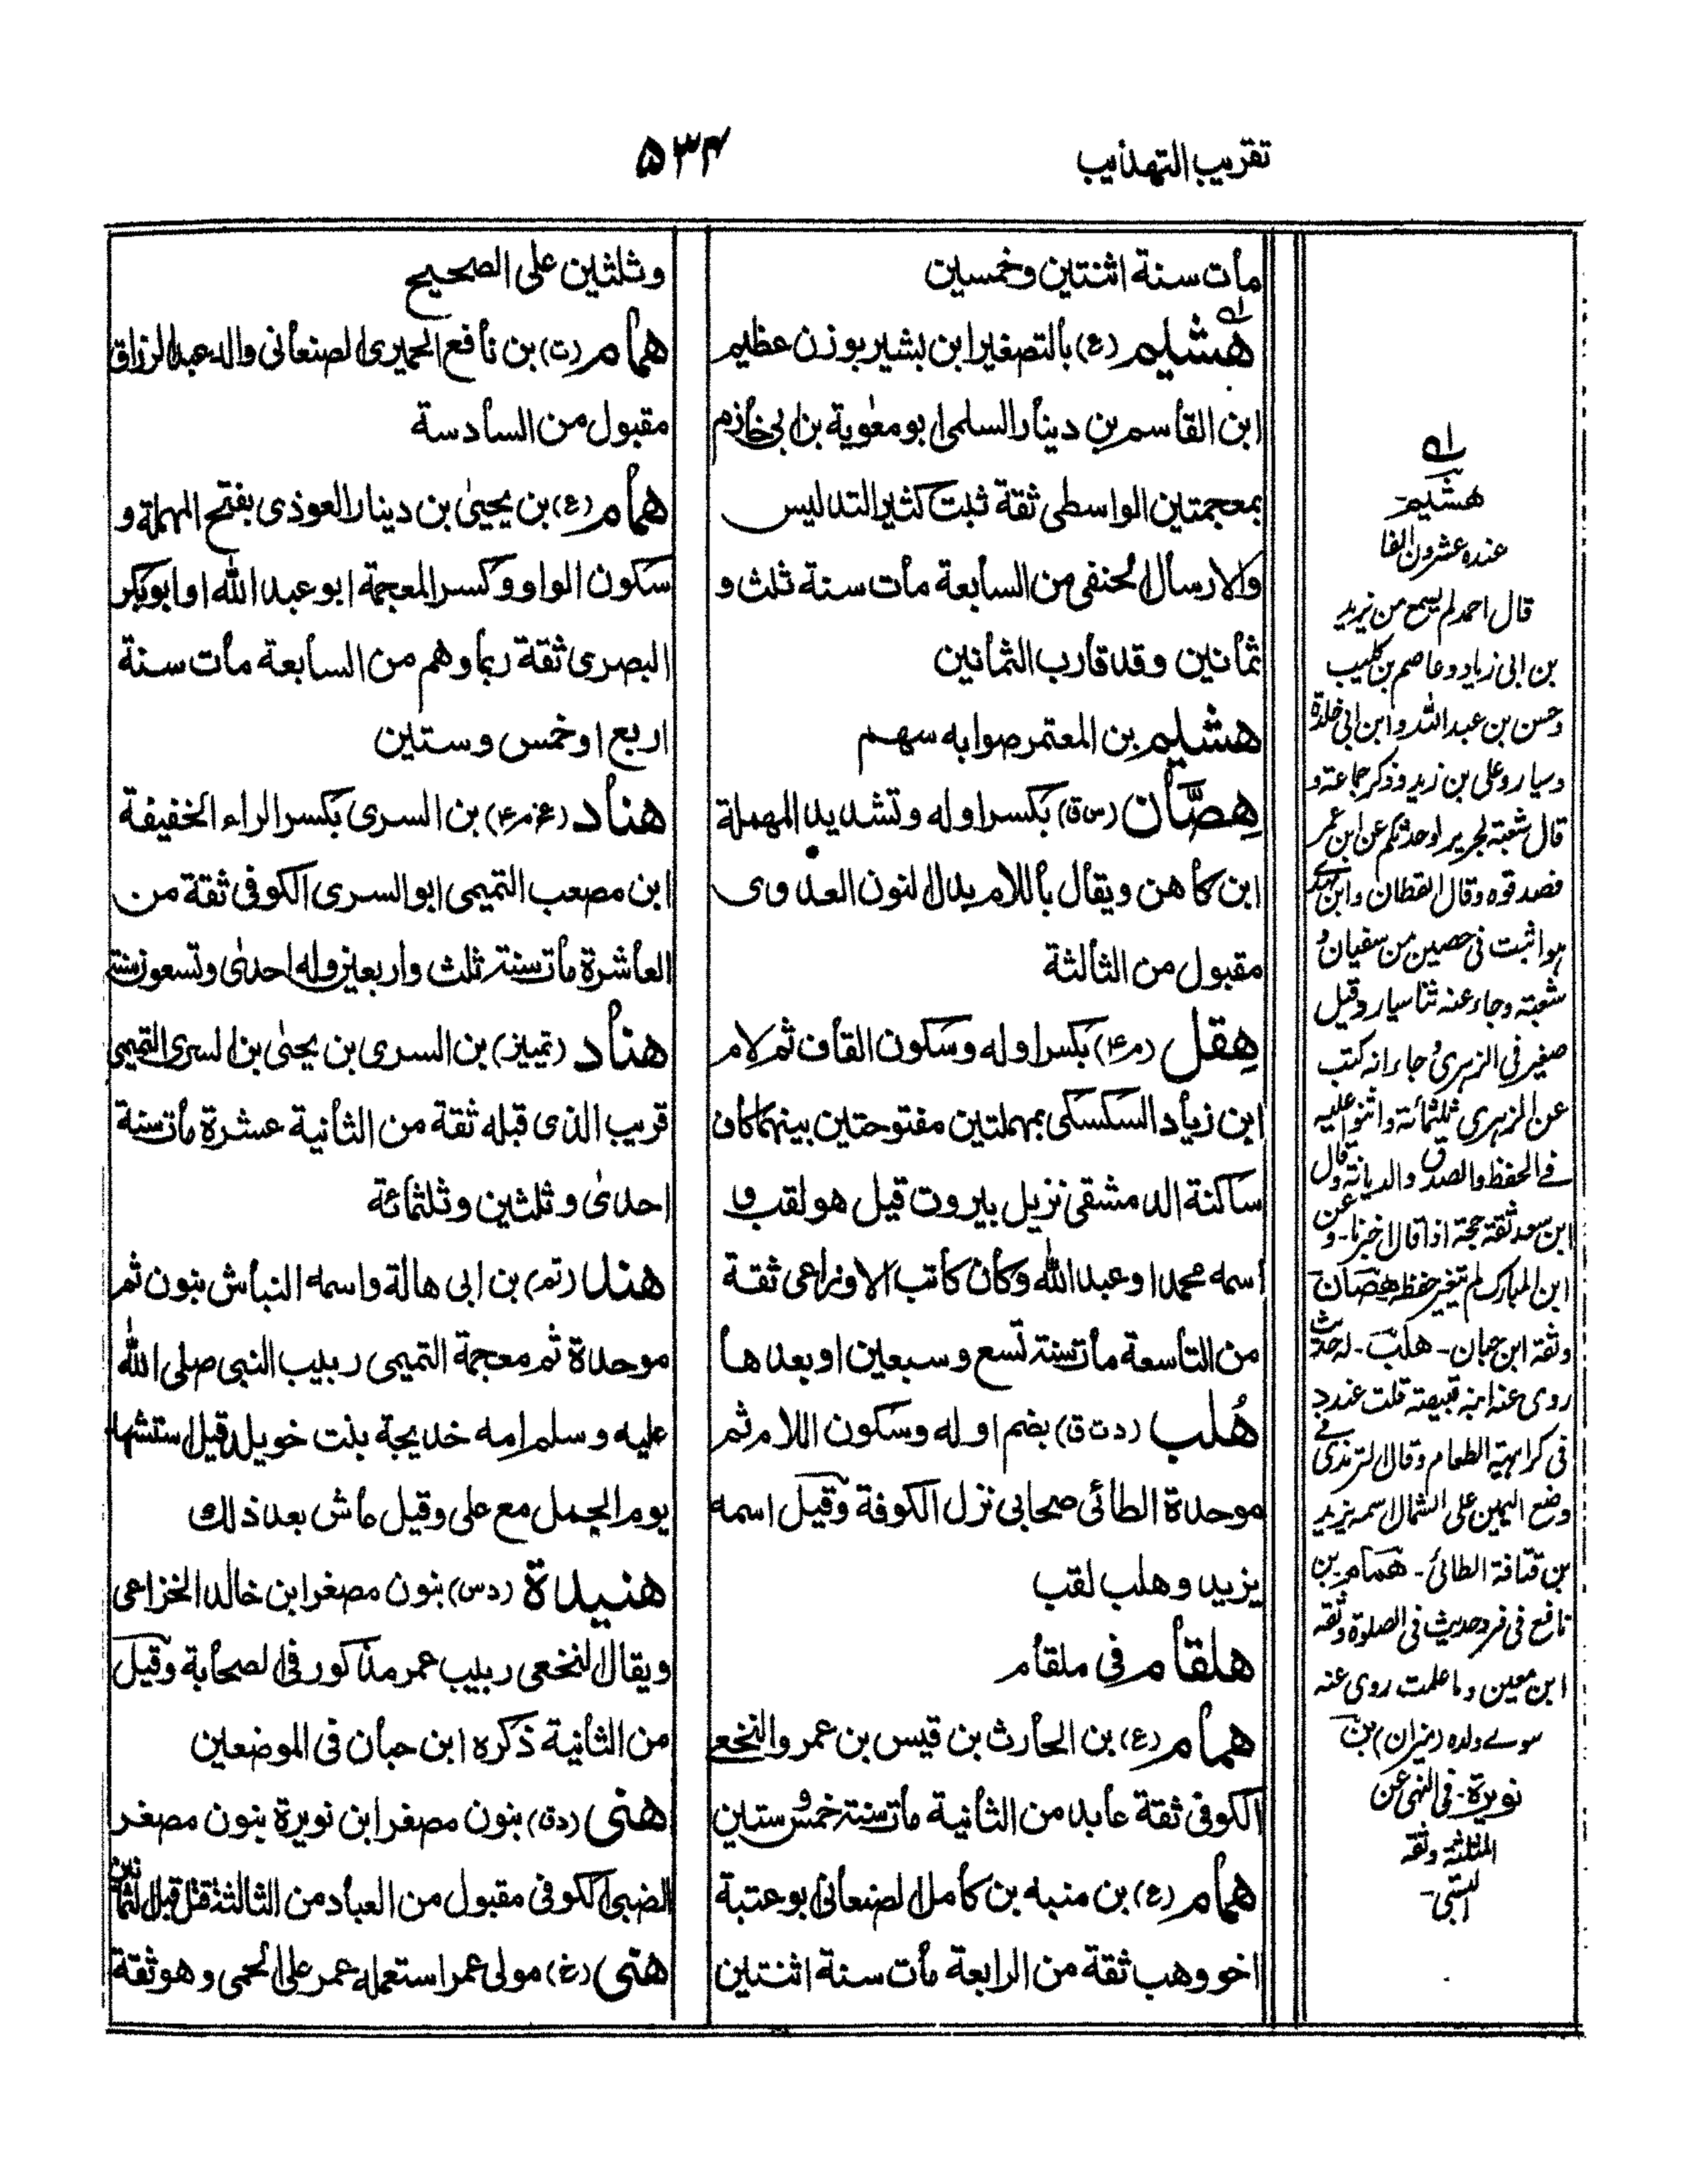 تقريب التهذيب
۵۳۴
مات سنة اثنتين وخمسين
هشيم (ع) بالتصغير ابن بشير بوزن عظيم
ابن القاسم بن دينار السلمى ابو معٰوية بن ابى خازم
بمعجمتين الواسطى ثقة ثبت كثير التدليس
والارسال الخفى من السابعة مات سنة ثلث و
ثمانين وقد قارب الثمانين
هشيم بن المعتمر صوابه سهم
هِصَّان (س ق) بكسر اوله وتشديد المهملة
ابن كاهن ويقال باللام بدل النون العدوى
مقبول من الثالثة
هِقل (م ۴) بكسر اوله وسكون القاف ثم لام
ابن زياد السكسكى بمهملتين مفتوحتين بينهما كاف
ساكنة الدمشقى نزيل بيروت قيل هو لقب و
اسمه محمد او عبد الله وكان كاتب الاوزاعى ثقة
من التاسعة مات سنة تسع وسبعين او بعدها
هُلب (د ت ق) بضم اوله وسكون اللام ثم
موحدة الطائى صحابى نزل الكوفة وقيل اسمه
يزيد وهلب لقب
هلقام فى ملقام
همام (ع) بن الحارث بن قيس بن عمرو النخعى
الكوفى ثقة عابد من الثانية مات سنة خمس وستين
همام (ع) بن منبه بن كامل الصنعانى ابو عتبة
اخو وهب ثقة من الرابعة مات سنة اثنتين
وثلثين على الصحيح
همام (ت) بن نافع الحميرى الصنعانى والد عبد الرزاق
مقبول من السادسة
همام (ع) بن يحيىٰ بن دينار العوذى بفتح المهملة و
سكون الواو وكسر المعجمة ابو عبد الله او ابو بكر
البصرى ثقة ربما وهم من السابعة مات سنة
اربع او خمس وستين
هناد (عخ م ۴) بن السرى بكسر الراء الخفيفة
ابن مصعب التميمى ابو السرى الكوفى ثقة من
العاشرة مات سنة ثلث واربعين وله احدىٰ وتسعون سنة
هناد (تمييز) بن السرى بن يحيىٰ بن السرى التميمى
قريب الذى قبله ثقة من الثانية عشرة مات سنة
احدىٰ وثلثين وثلثمائة
هند (تم) بن ابى هالة واسمه النباش بنون ثم
موحدة ثم معجمة التميمى ربيب النبى صلى الله
عليه وسلم امه خديجة بنت خويلد قيل استشهد
يوم الجمل مع على وقيل عاش بعد ذلك
هنيدة (د س) بنون مصغر ابن خالد الخزاعى
ويقال النخعى ربيب عمر مذكور فى الصحابة وقيل
من الثانية ذكره ابن حبان فى الموضعين
هنى (د ق) بنون مصغر ابن نويرة بنون مصغر
الضبى الكوفى مقبول من العباد من الثالثة قتل قبل الثمانين
هنى (خ) مولى عمر استعمله عمر على الحمى وهو ثقة
له
هشيم
عنده عشرون الفا
قال احمد لم يسمع من يزيد
بن ابى زياد وعاصم بن كليب
وحسن بن عبد الله وابن ابى خلدة
وسيار وعلى بن زيد وذكر جماعة و
قال شعبة لجرير او حدثكم عن ابن عمر
فصدقوه وقال القطان وابن مهدى
هو اثبت فى حصين من سفيان و
شعبة وجاء عنه ثنا سيار وقيل
صغير فى الزهرى وجاء انه كتب
عن الزهرى ثلثمائة واثنوا عليه
فى الحفظ والصدق والديانة وقال
ابن سعد ثقة حجة اذا قال اخبرنا - وعن
ابن المبارك لم تغير حفظه هصان
وثقه ابن حبان - هلب - له حديث
روى عنه ابنه قبيصة قلت عند د
فى كراهية الطعام وقال الترمذى فى
وضع اليمين على الشمال اسمه يزيد
بن قنافة الطائى - همام بن
نافع فى فرد حديث فى الصلوة وثقه
ابن معين وما علمت روى عنه
سوى ولده (ميزان) بن
نويرة - فى النهى عن
المثلة وثقه